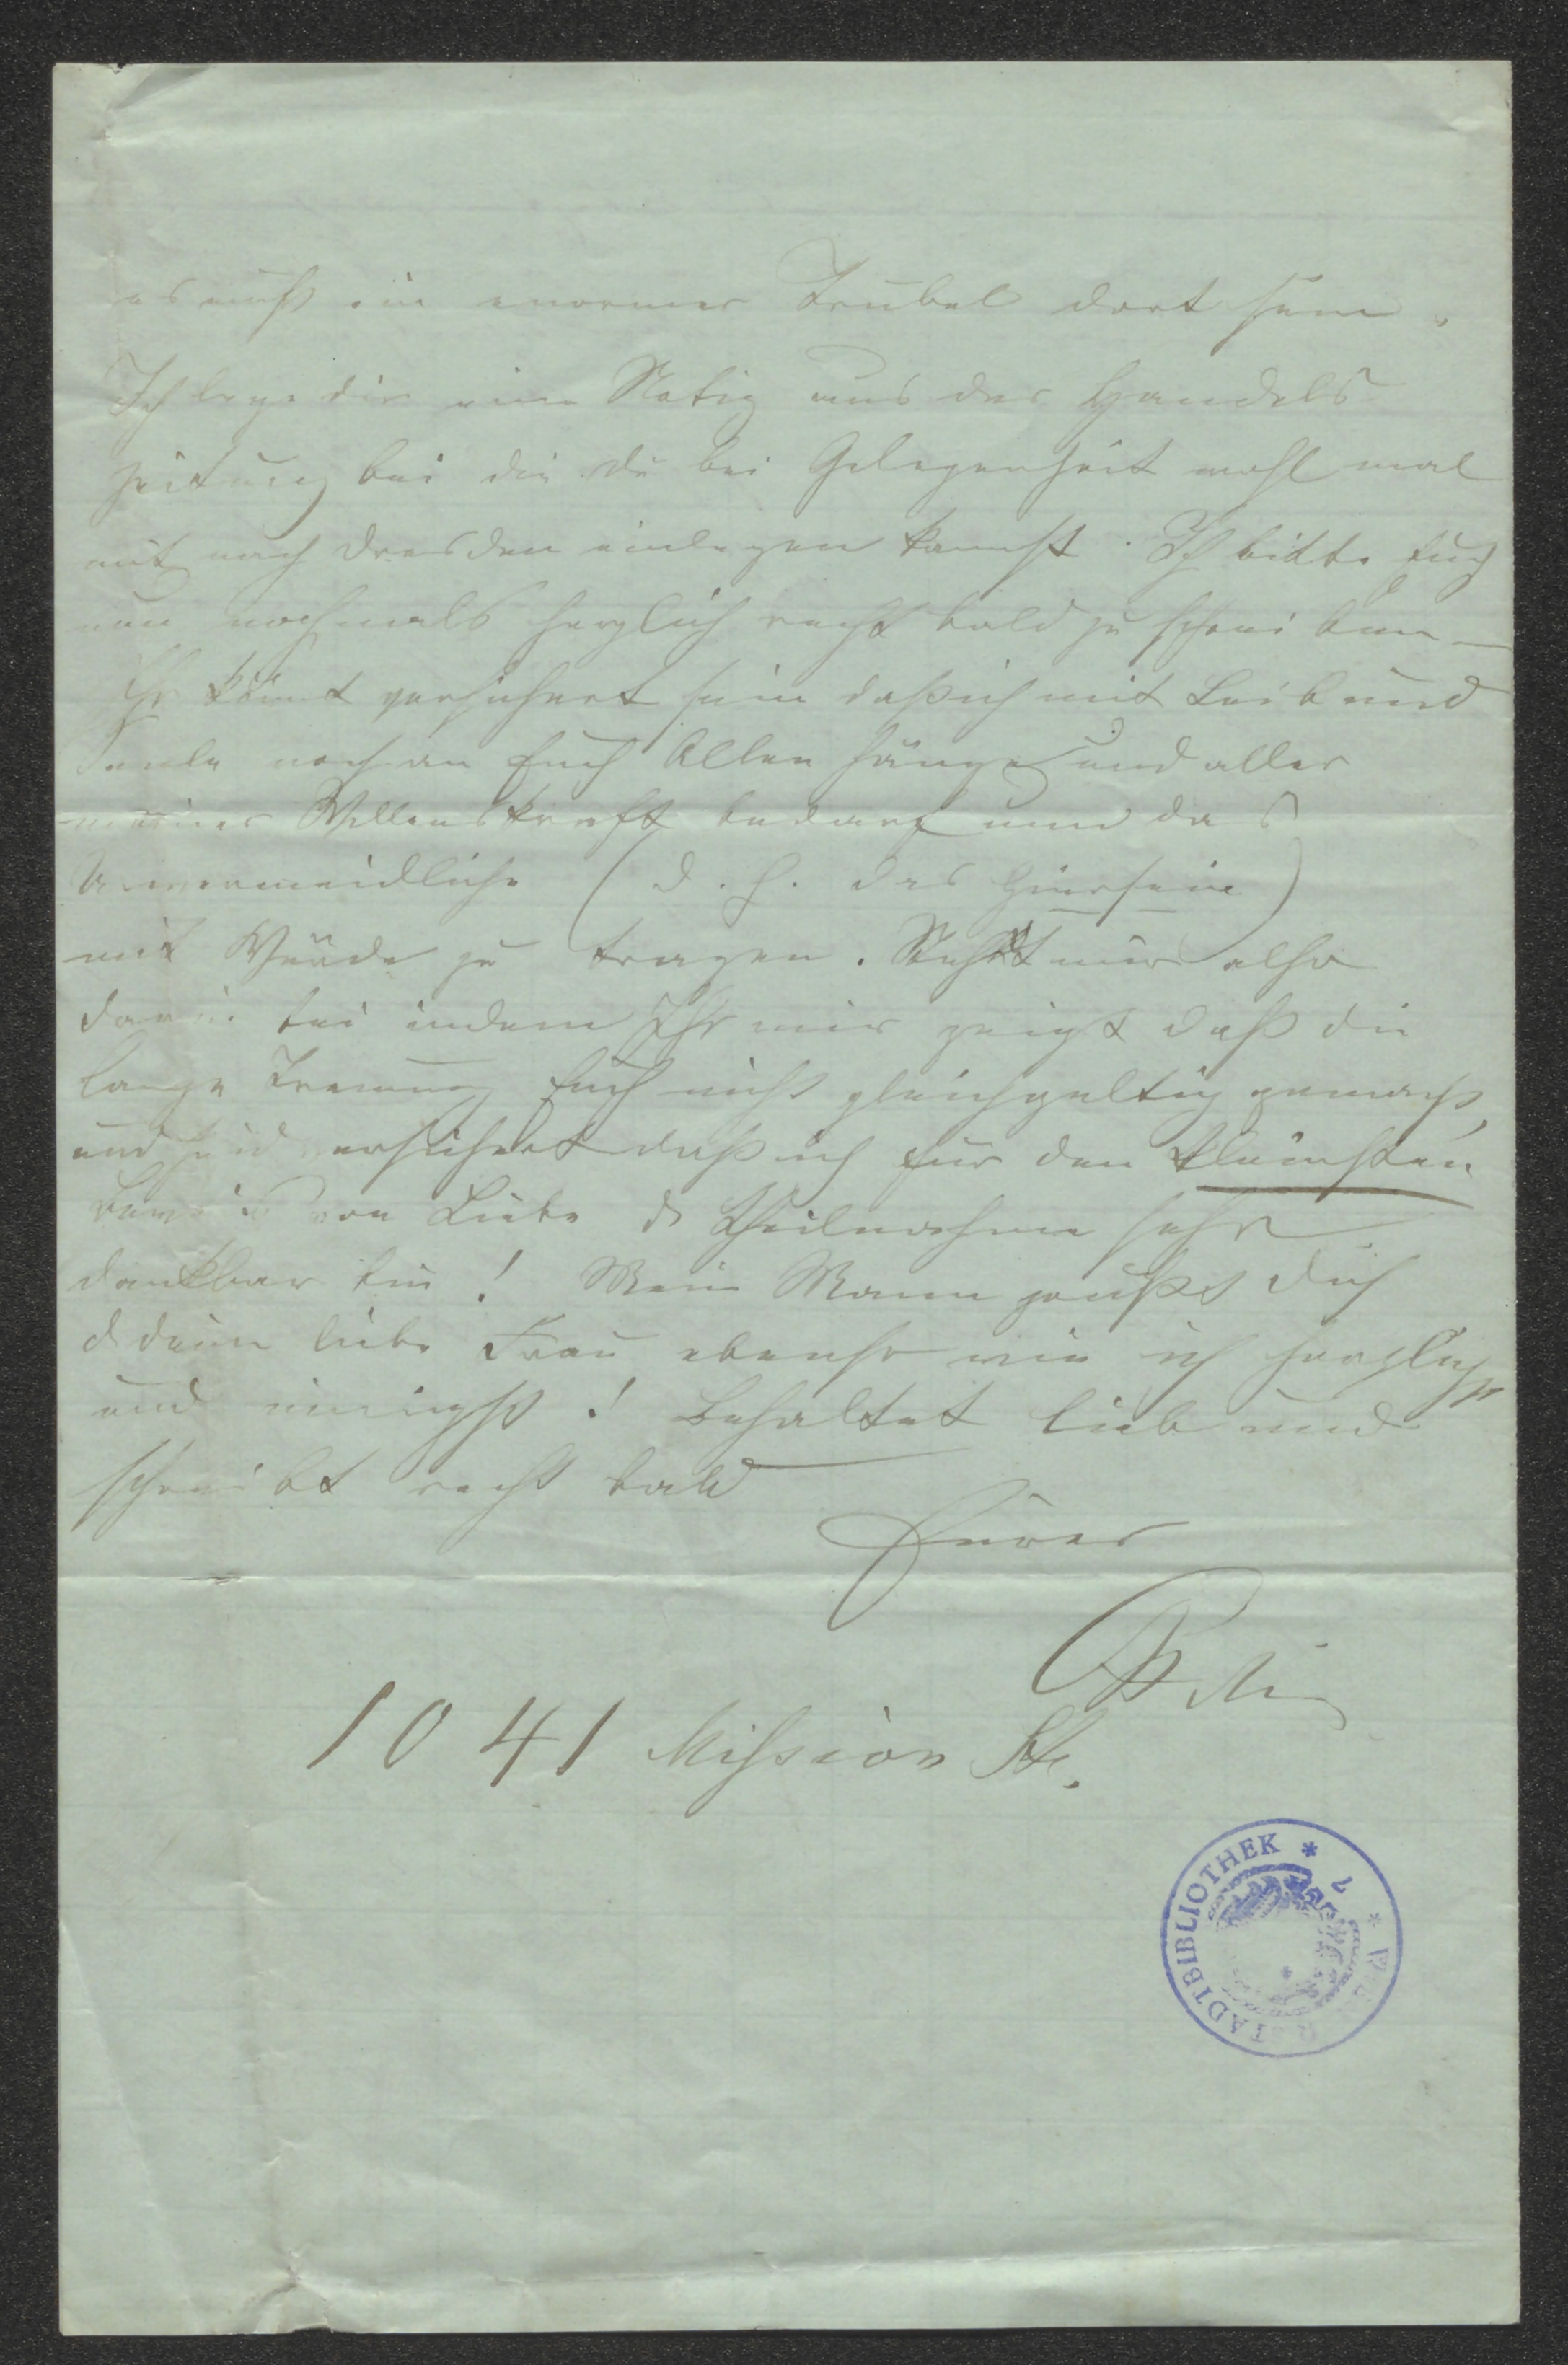 es muß ein enormer Trubel dort sein.
Ich lege dir eine Notiz aus der Handels
zeitung bei die du bei Gelegenheit wohl mal
mit nach Dresden einlegen kannst. Ich bitte Euch
nun nochmals herzlich recht bald zu schreiben –
Ihr könnt versichert sein daß ich mit Leib und
Seele noch an Euch Allen hänge und aller
meiner Willenskraft bedarf um das
Unvermeidliche (d. h. das Hiersein)
mit Würde zu tragen. Steht mir also
darin bei indem Ihr mir zeigt daß die
lange Trennung Euch nicht gleichgeltig gemacht,
und seid versichert daß ich für den kleinsten
Beweis von Liebe & Theilnahme sehr
dankbar bin! Mein Mann grüßt dich
& deine liebe Frau ebenso wie ich herzlichst
und innigst! Behaltet lieb und
schreibt recht bald
Eurer
1041 Mission Str.
STADTBIBLIOTHEK *